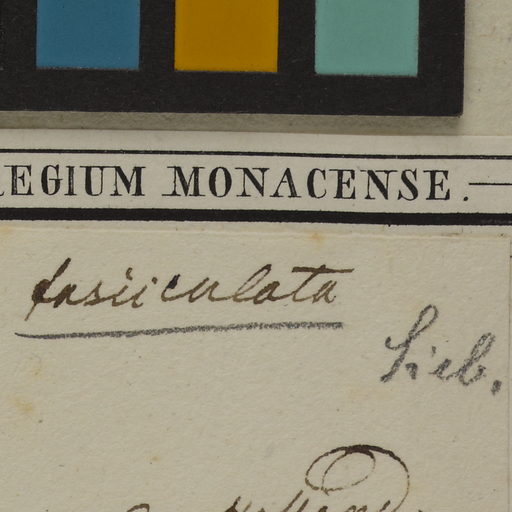 REGIUM MONACENSE.
fasciculata
Sieb.